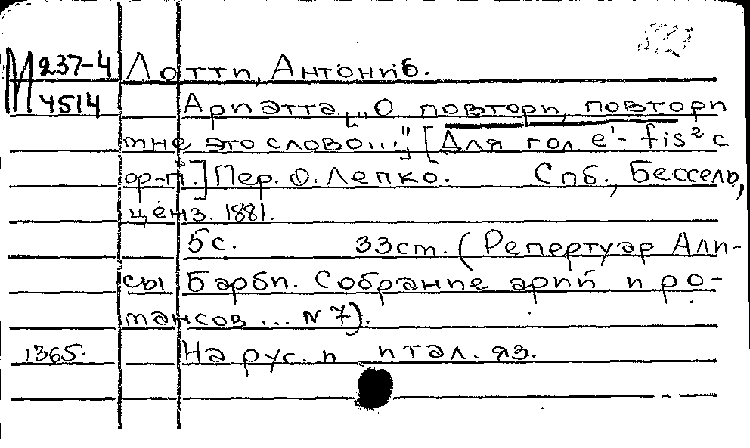 М 237-4 Лотти, Антонио.
4514 Ариэтта ["О повтори, повтори
мне это слово..."] [Для гол. e'- fis² с
ф-п.] Пер. О. Лепко. Спб., Бессель,
ценз. 1881.
5с. 33см. (Репертуар Али-
сы Барби. Собрание арий и ро-
мансов... N 7).
1365. На рус. и итал. яз.